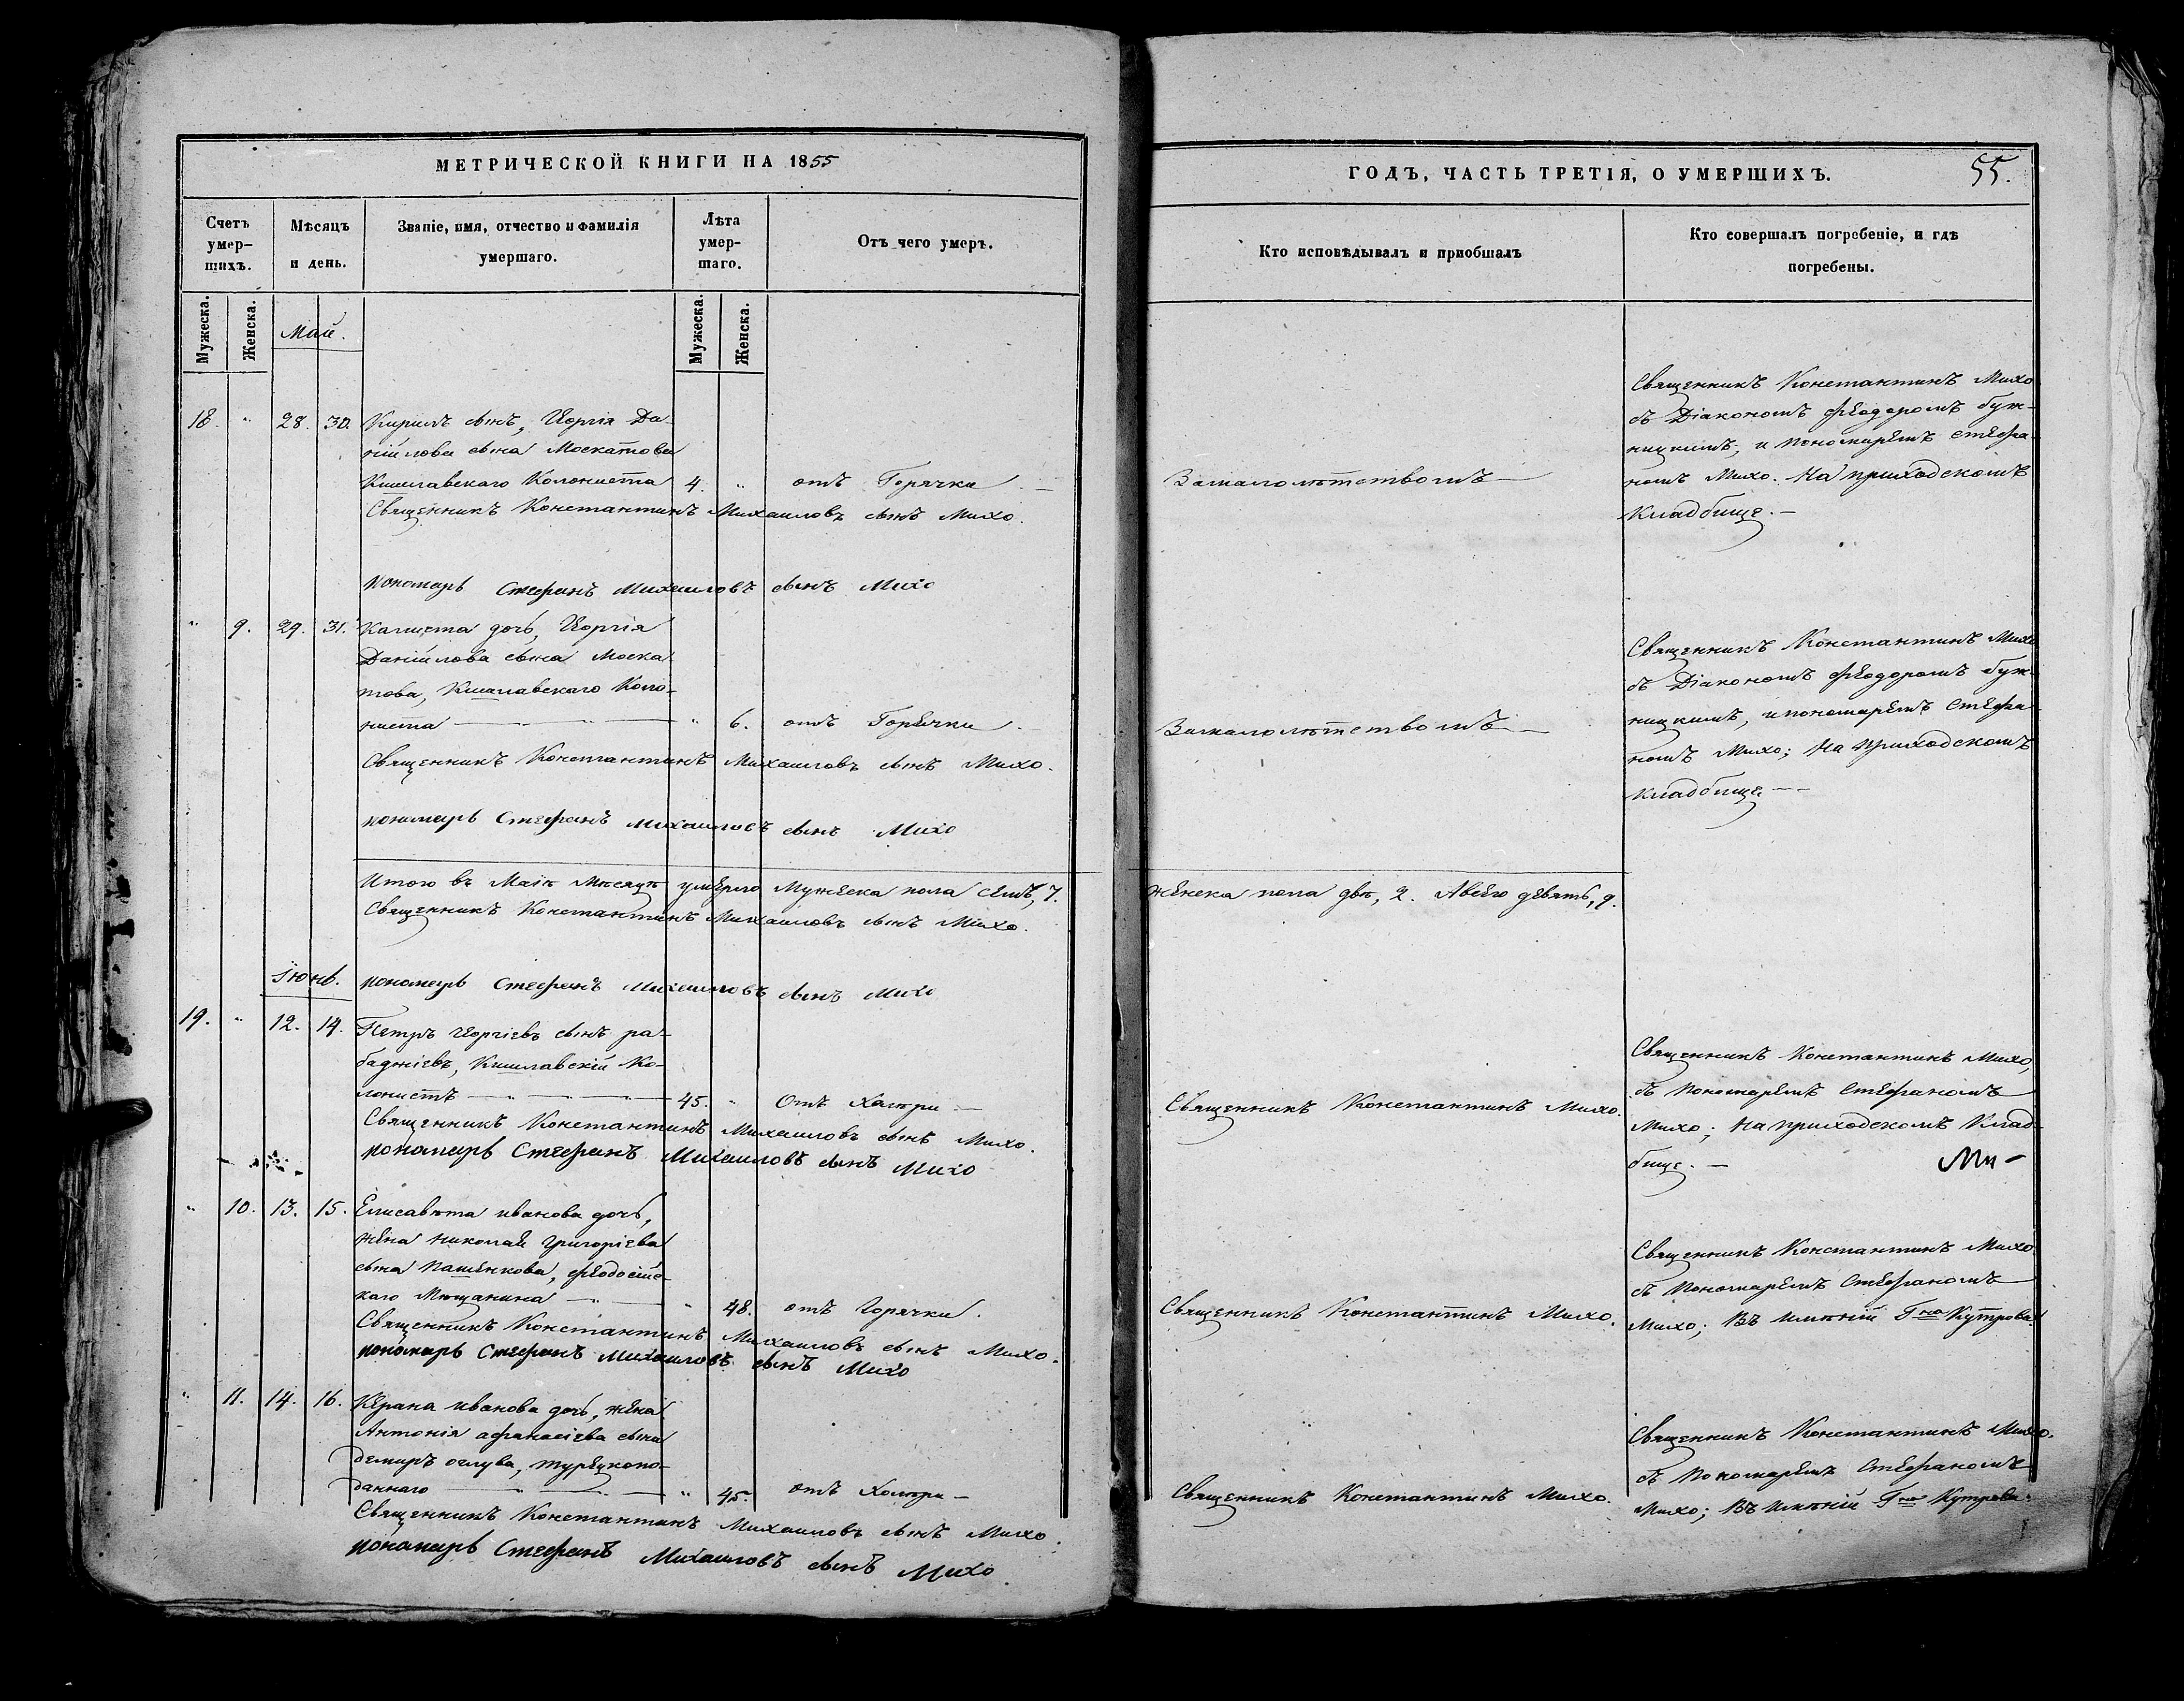 МЕТРИЧЕСКОЙ КНИГИ НА 1855
Счетъ умер-шихъ.
Мѣсяцъ и день.
Званіе, имя, отчество и фамилія умершаго.
Лѣта умер-шаго.
Отъ чего умеръ.
Мужеска.
Женска.
Май.
Мужеска.
Женска.
18. " 28. 30. Кирилъ сынъ, Георгія Да-
ніилова сына Москатова
Кишлавскаго Колониста 4. " отъ Горячки —
Священникъ Константинъ Михаиловъ сынъ Михо.
пономарь Стефанъ Михаиловъ сынъ Михо
" 9. 29. 31. Калиста дочь, Георгія
Даніилова сына Моска
това, Кишлавскаго Коло-
ниста — " — " 6. отъ Горячки.
Священникъ Константинъ Михаиловъ сынъ Михо.
пономарь Стефанъ Михаиловъ сынъ Михо
Итого въ Маіѣ Мѣсяцѣ умерло Мужеска пола семь, 7.
Священникъ Константинъ Михаиловъ сынъ Михо.
Іюнь.
пономарь Стефанъ Михаиловъ сынъ Михо
19. " 12. 14. Петръ Георгіевъ сынъ ра-
баджіевъ, Кишлавскій Ко-
лонистъ — " — " — 45. " Отъ Халери —
Священникъ Константинъ Михаиловъ сынъ Михо.
пономарь Стефанъ Михаиловъ сынъ Михо
" 10. 13. 15. Елисавета иванова дочь,
жена николая григоріева
сына пашенкова, феодосійс-
каго Мѣщанина — " — " 48. отъ Горячки.
Священникъ Константинъ Михаиловъ сынъ Михо.
пономарь Стефанъ Михаиловъ сынъ Михо
" 11. 14. 16. Керана иванова дочь, жена
Антонія афанасіева сына
демиръ оглува, турецкопо-
даннаго — " — " — " 45. отъ Холери —
Священникъ Константинъ Михаиловъ сынъ Михо.
пономарь Стефанъ Михаиловъ сынъ Михо.
ГОДЪ, ЧАСТЬ ТРЕТІЯ, О УМЕРШИХЪ. 55.
Кто исповѣдывалъ и пріобщалъ
Кто совершалъ погребеніе, и гдѣ
погребены.
Священникъ Константинъ Михо
съ Діакономъ феодоромъ буж-
ницкимъ, и пономаремъ стефа-
Замалолѣтствомъ — номъ Михо. На приходскомъ
Кладбище. —
Священникъ Константинъ Михо
съ Діакономъ феодоромъ буж-
ницкимъ, и пономаремъ Стефа-
Замалолѣтствомъ — номъ Михо; На приходскомъ
кладбище — —
женска пола двѣ, 2. Авсего девять, 9.
Священникъ Константинъ Михо,
съ пономаремъ Стефаномъ
Священникъ Константинъ Михо. Михо; На приходскомъ Клад-
бище. —
Священникъ Константинъ Михо
съ Пономаремъ Стефаномъ
Священникъ Константинъ Михо. Михо; Въ имѣній Г-на Кутрова.
Священникъ Константинъ Михо.
съ Пономаремъ Стефаномъ
Священникъ Константинъ Михо. Михо; Въ имѣній Г-на Кутрова.